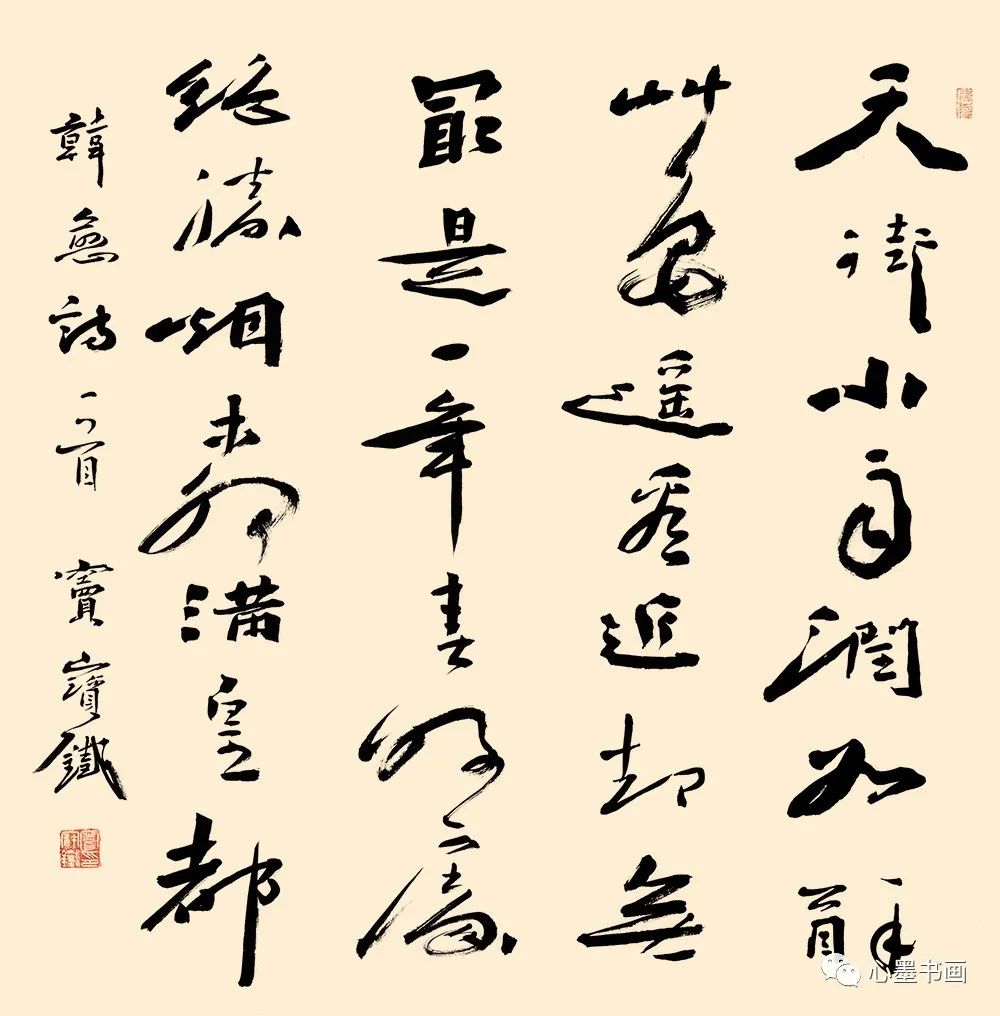 天街小雨潤如酥
艸色遥看近却無
最是一年春好處
絶勝烟柳滿皇都
韓愈詩一首 竇寶鐵
心墨书画